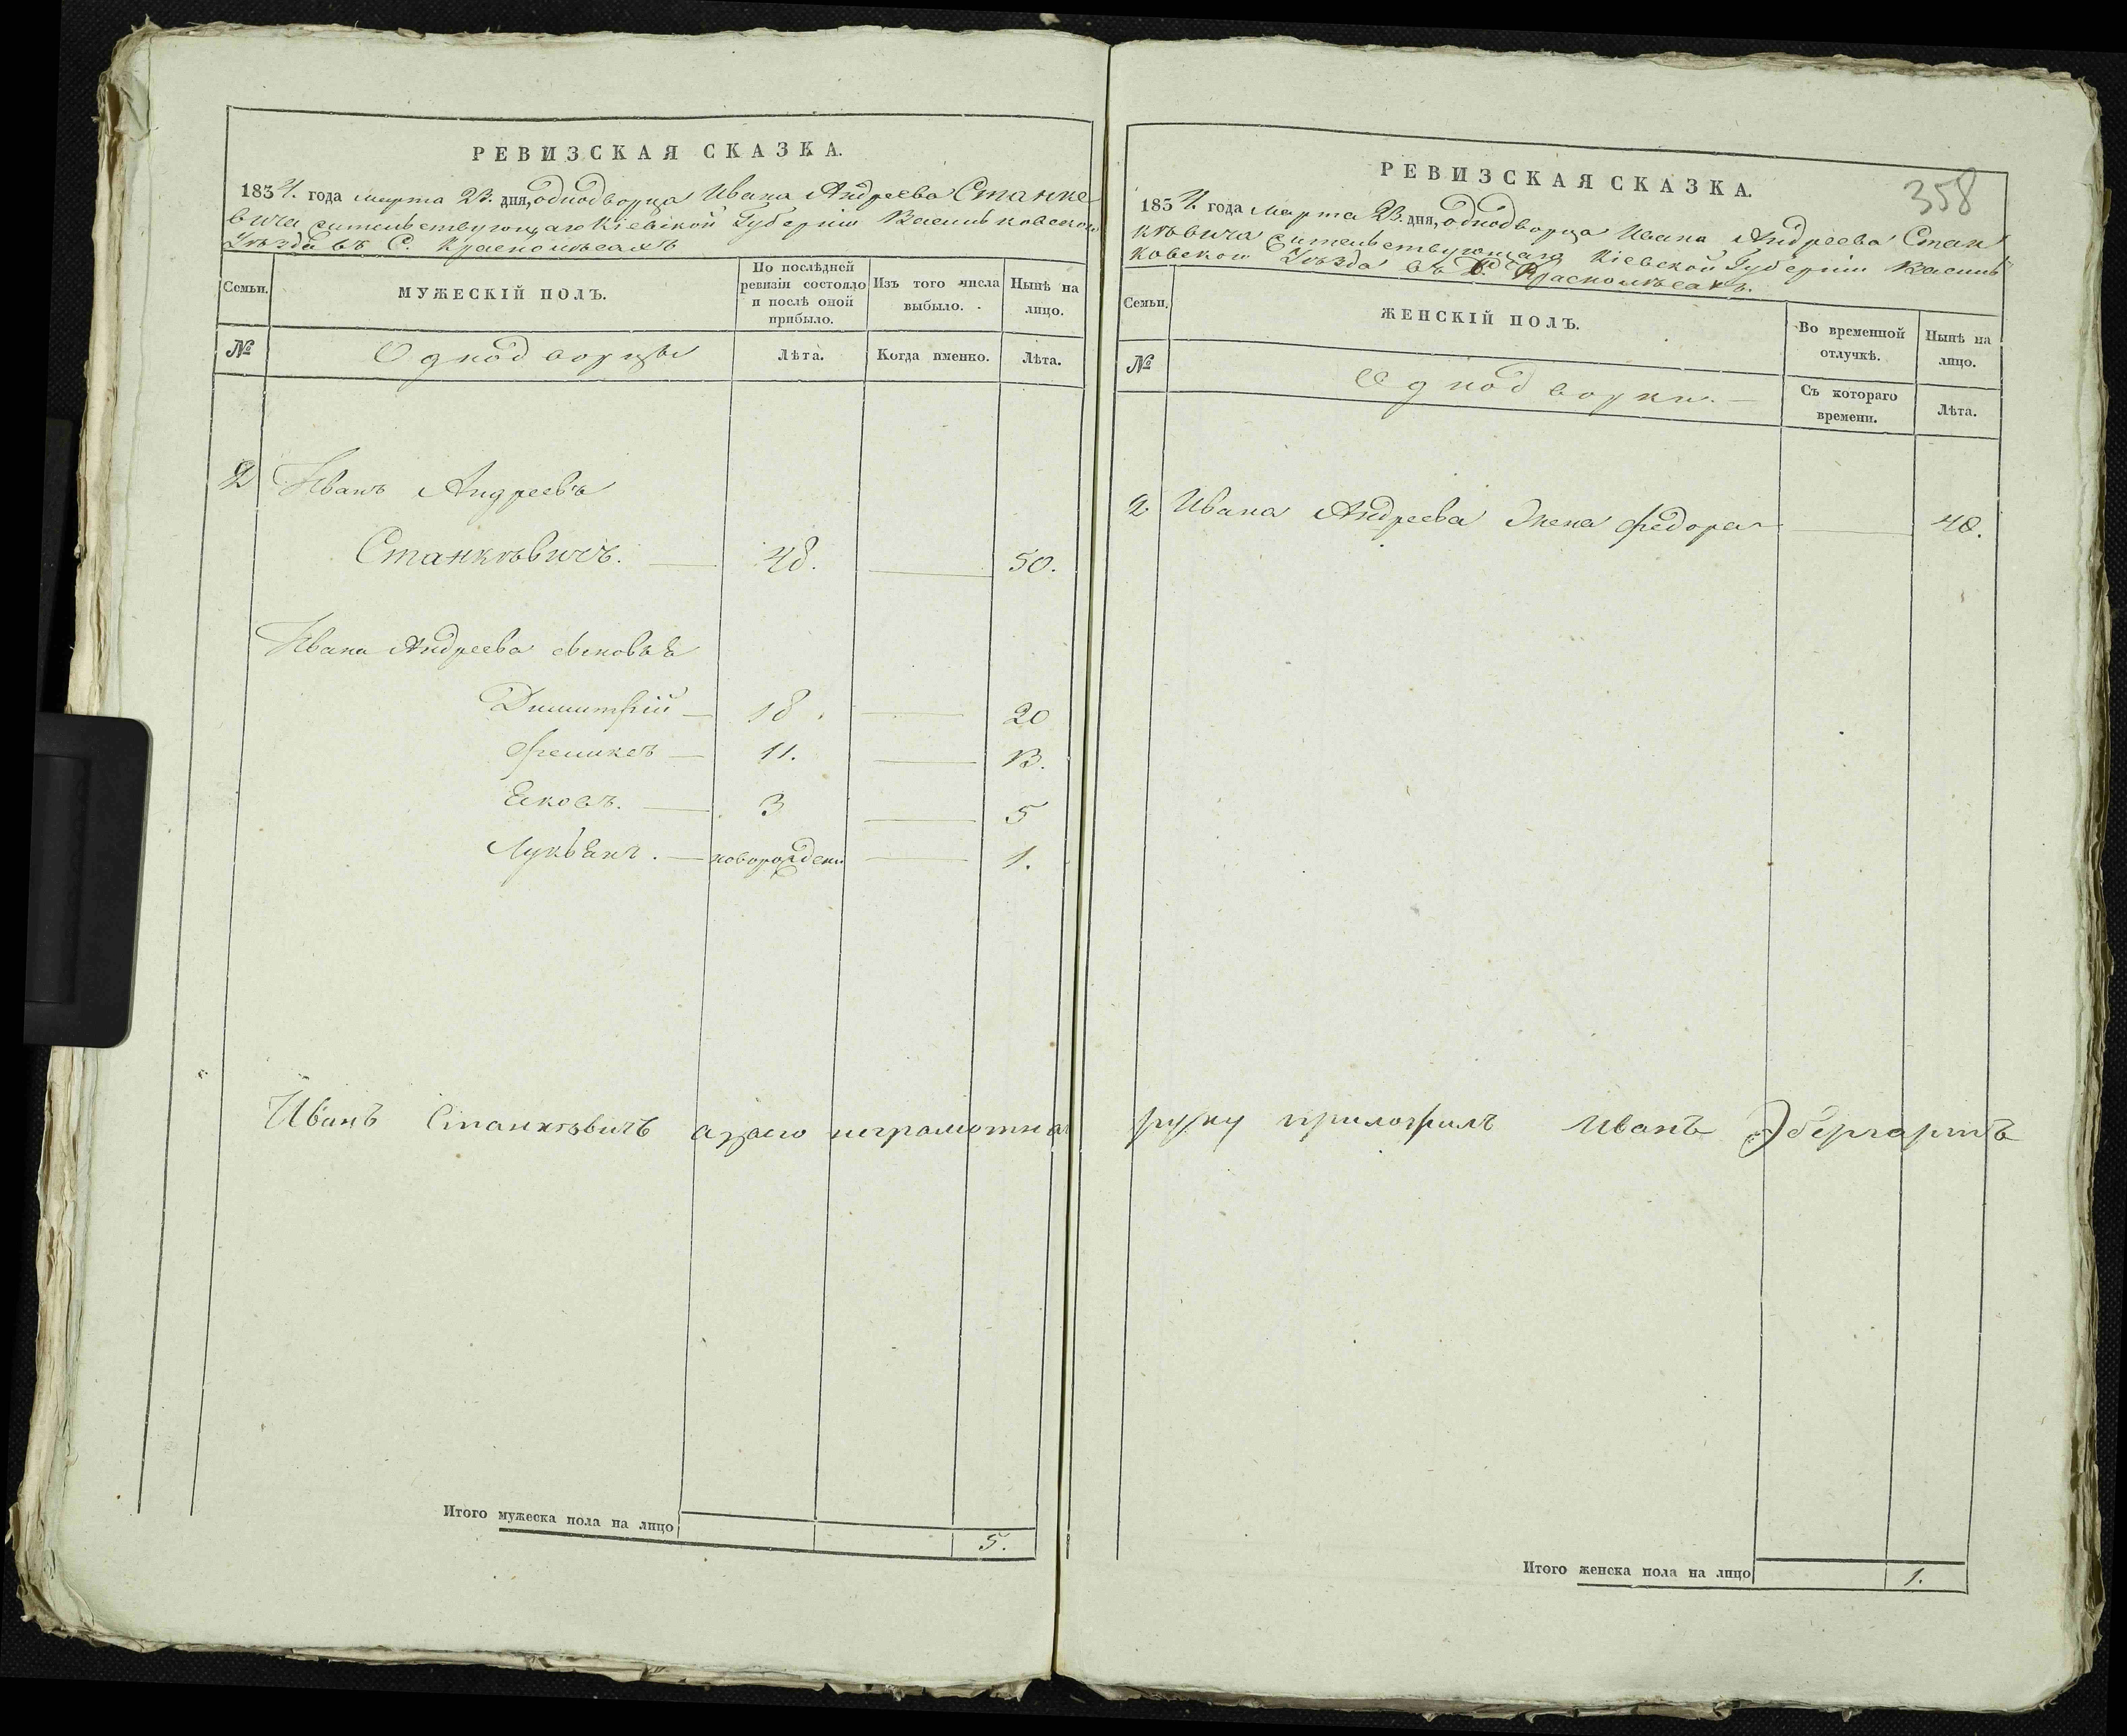 РЕВИЗСКАЯ СКАЗКА.
1834. года марта 23. дня, однодворца Ивана Андреева Станке
вича жительствующаго Кіевской Губерніи Васильковского
Уѣзда въ С. Краснолѣсахъ
Семьи.
МУЖЕСКІЙ ПОЛЪ.
По послѣдней ревизіи состояло и послѣ оной прибыло.
Изъ того числа выбыло.
Нынѣ на лицо.
№
Однодворцы
Лѣта.
Когда именно.
Лѣта.
2 Иванъ Андреевъ
Станкѣвичъ. 48. 50.
Ивана Андреева сыновья
Димитрій 18. 20
Феликсъ 11. 13.
Яковъ. 3 5
Лукьянъ. новорожден 1.
Иванъ Станкѣвичъ азаего неграмотнаго
Итого мужеска пола на лицо 5.
358
РЕВИЗСКАЯ СКАЗКА.
1834. года Марта 23. дня, однодворца Ивана Андреева Стан
кѣвича жительствующаго Кіевской Губерніи Василь
ковского Уѣзда въ С. Краснолѣсахъ.
Семьи.
ЖЕНСКІЙ ПОЛЪ.
Во временной отлучкѣ.
Нынѣ на лицо.
№
Однодворки.
Съ котораго времени.
Лѣта.
2 Ивана Андреева Жена Федора 48.
руку приложилъ Иванъ Эбергартъ
Итого женска пола на лицо 1.